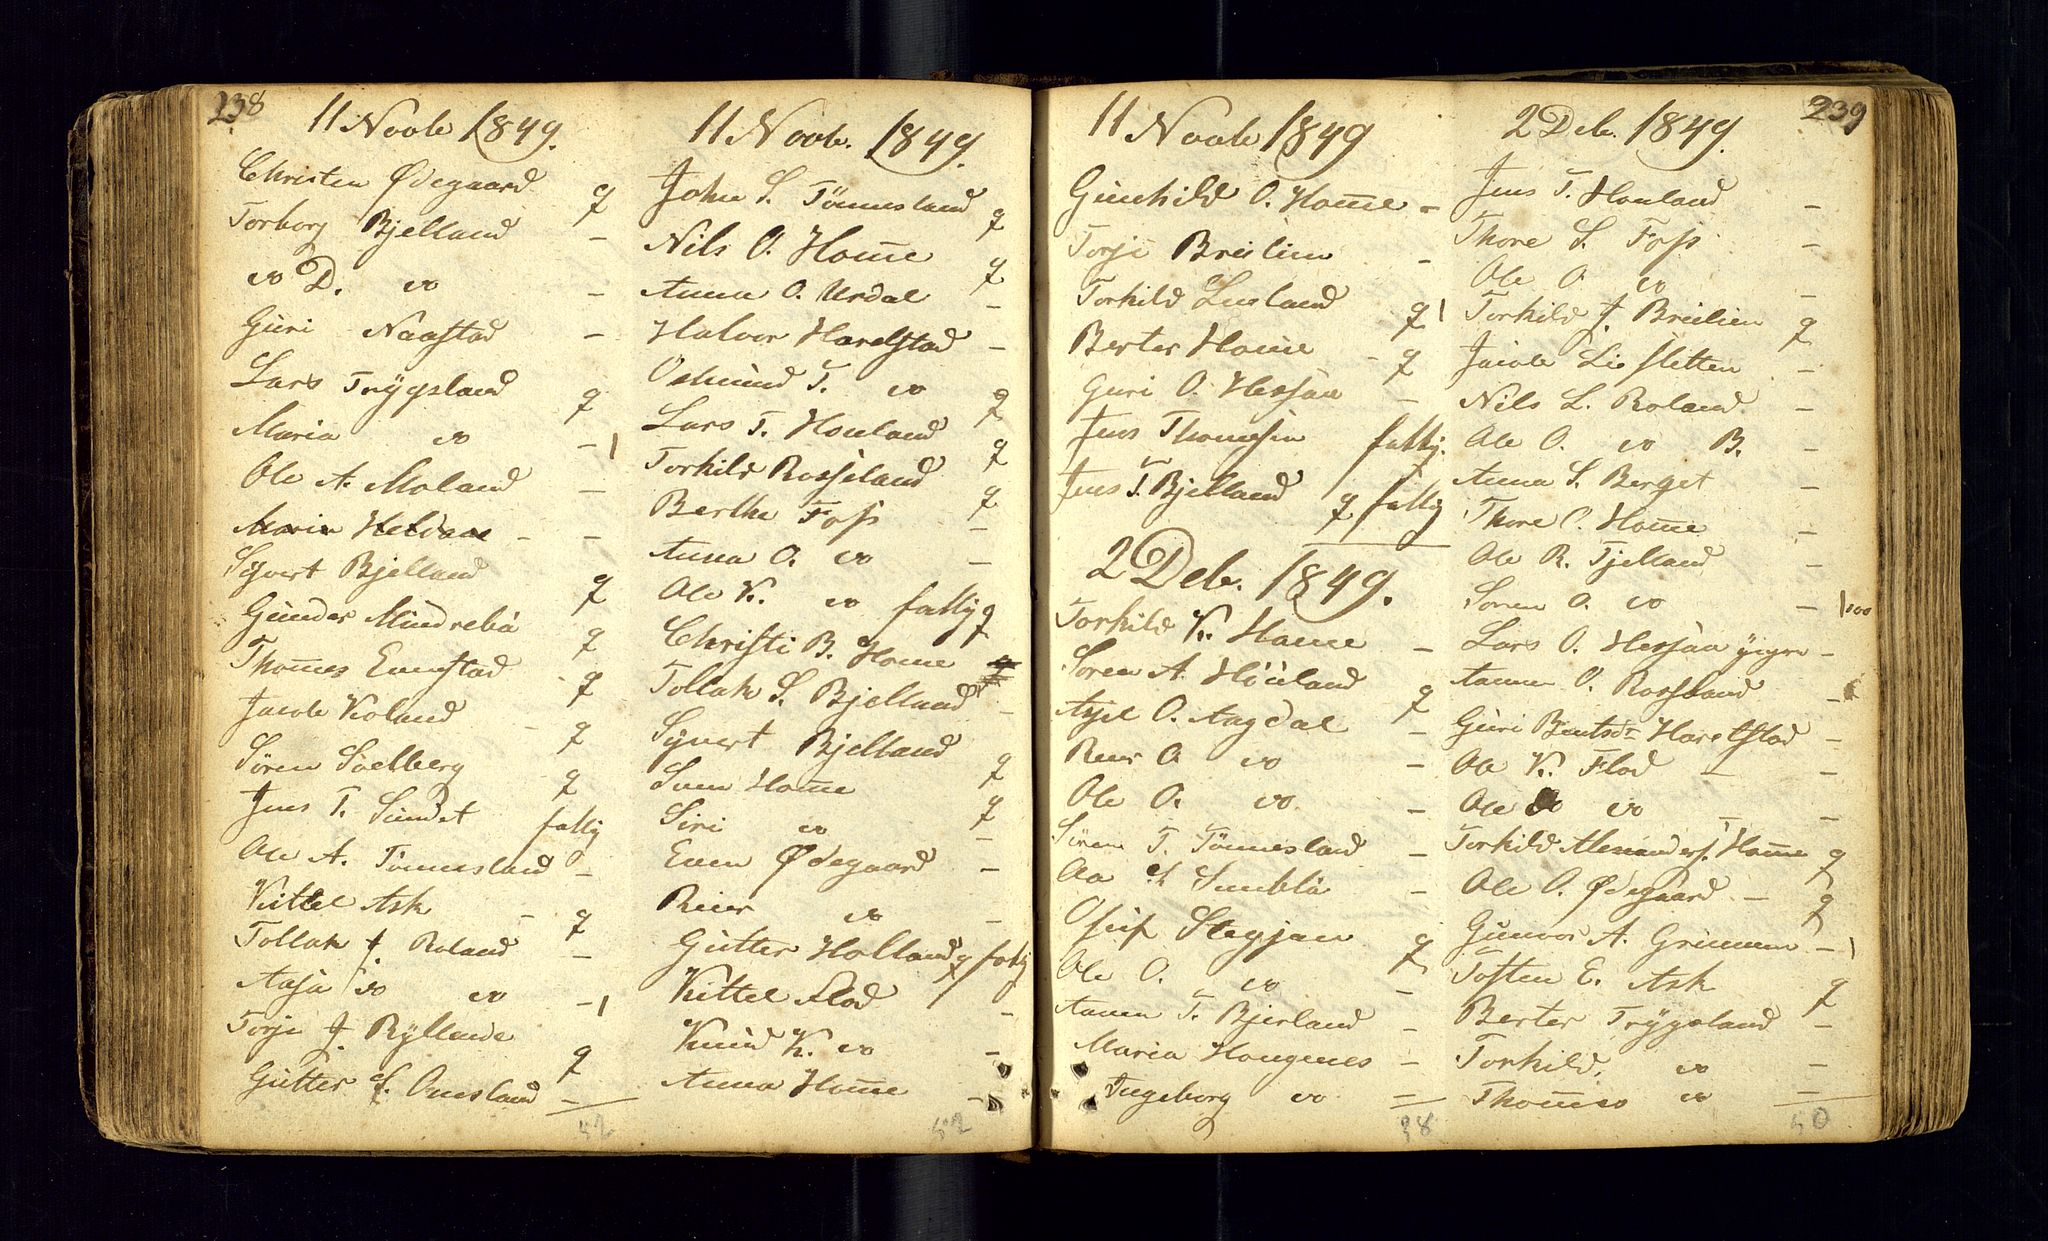 238
11 Novb 1849.
Christen Ødegaard q
Torborg Bjelland -
do D. do -
Guri Naastad -
Lars Trÿgsland q
Maria do - 1
Ole A. Moland -
Maria Heldaas - -
Syvert Bjelland q
Gunder Mindrebö q
Thomes Eunstad - q
Jacob Roland - q
Sören Soelberg q
Jens T. Sundet fattig
Ole A. Tönnesland -
Kittel Ask - q
Tollak J. Roland -
Aasa do do - 1
Torje J. Ryllande q
Gutter J. Onesland -
52
11 Novb. 1849.
John S. Tönnesland q
Nils O. Home q
Anna O. Urdal -
Halvor Harelstad -
Osmund T. do q
Lars T. Honland q
Torkild Rosseland q
Berthe Foss -
Anna O. do -
Ole K. do fattig q
Christi B. Home
Tollak S. Bjelland -
Syvert Bjelland q
Sven Home q
Siri do -
Even Ødegaard -
Reier do -
Gutter Holland q fattig
Kittel Flod -
Knud K. do -
Anna Home -
52
11 Novb 1849
Gunhild O. Home -
Torje Breilien -
Torkild Lusland q 1
Berter Home - q
Guri O. Hessaa -
Jens Thomesen fattig.
Jens T. Bjelland q fattig
2 Deb. 1849.
Torkild K. Home -
Sören A. Hönland q
Axel O. Aagdal -
Reier O do -
Ole O. do -
Sören T. Tönnesland -
Aa S -
Stegjan q
Ole O. do -
Aanen T. Bjerland -
Maria Hougenes -
Ingeborg do -
38
2 Deb. 1849.
239
Jens T. Honland -
Thore S. Foss -
Ole O. do -
Torkild J. Breilien q
Jacob Lisletten -
Nils L. Roland -
Ole O. do B. -
Anna S. Berget -
Thore O. Home -
Ole R. Tjelland -
Sören O. do - 100
Lars O. Hessaa yngre -
Aanen O. Rossland -
Guri Bentsdr Harelstad -
Ole K. Flod - -
Ole do -
Torkild Alexanders. Home q
Ole O. Ødegaard - q
Gunvor A. Grummen - 1
Tosten E. Ask q
Berter Trÿgsland -
Torkild. do -
Thomes do -
50